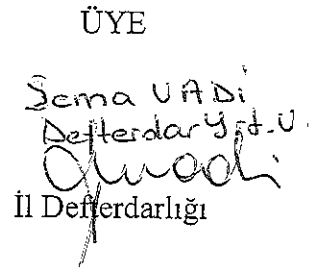 ÜYE
Sema VADİ
Defterdar Yrd. V.
İl Defterdarlığı